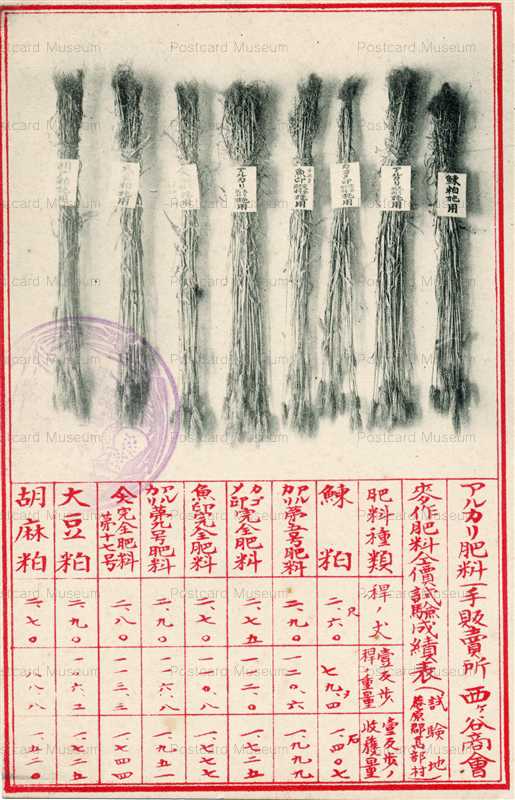 アルカリ肥料一手販賣所 西ヶ谷商會
麥作肥料全價試驗成績表
試驗地
庵原郡高部村
肥料種類
稈ノ丈
壹反歩稈ノ重量
壹反歩ノ收穫量
鰊粕
二、六〇
尺
七九、四
一、四〇七
石
アルカリ第五号肥料
二、九〇
一二〇、六
一、九九九
カゴメ印完全肥料
二、七五
一一二、〇
一、七二五
魚印完全肥料
二、七〇
一一〇、八
一、七七七
アルカリ第九号肥料
二、九〇
一一六、八
一、九五一
仝完全肥料
第十七号
二、八〇
一一三、三
一、七四四
大豆粕
二、九〇
一〇六、二
一、七二五
胡麻粕
二、七〇
一、五二〇
鰊粕施用
アルカリ
施用
魚印
施用
アルカリ
施用
Postcard Museum